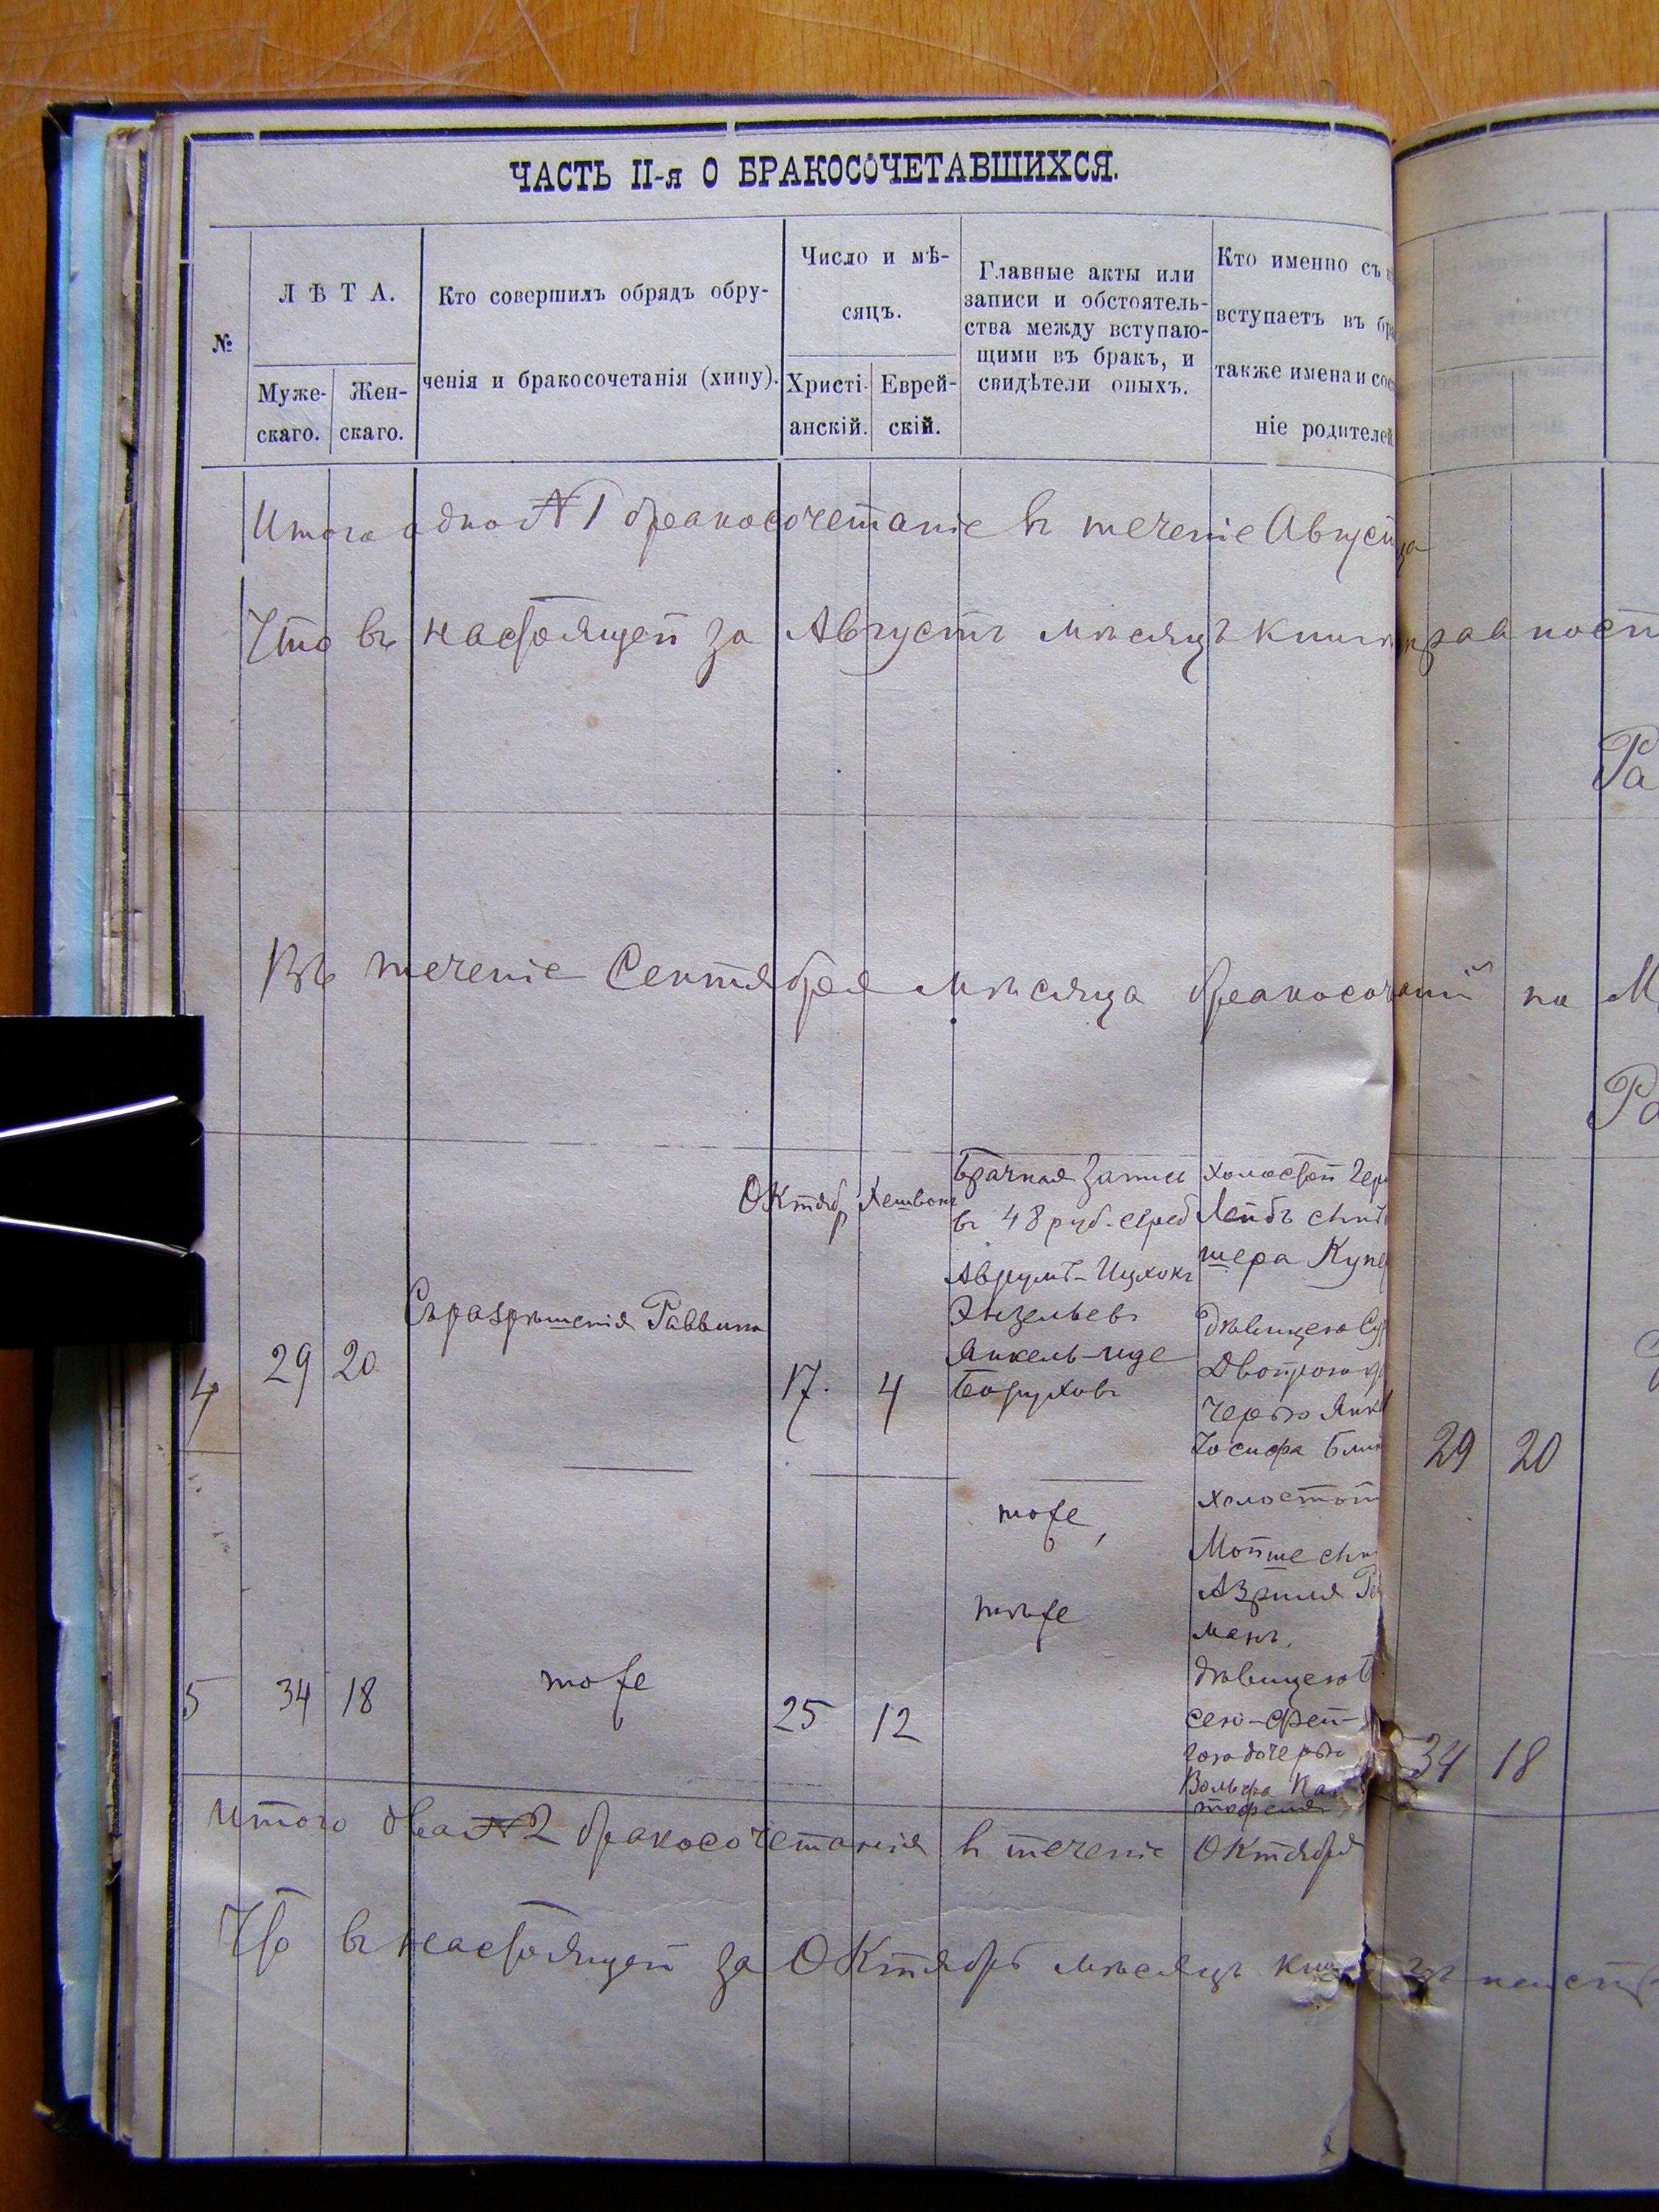 ЧАСТЬ II-я О БРАКОСОЧЕТАВШИХСЯ.
№
ЛѢТА.
Муже-
скаго.
Жен-
скаго.
Кто совершилъ обрядъ обру-
ченія и бракосочетанія (хипу).
Число и мѣ-
сяцъ.
Христі-
анскій.
Еврей-
скій.
Главные акты или
записи и обстоятель-
ства между вступаю-
щими въ бракъ, и
свидѣтели оныхъ.
Кто именно съ
вступаетъ въ
также имена и
ніе родителей
Итого одно № 1 бракосочетаніе въ теченіе Августа
Что въ настоящей за Августъ мѣсяцъ
Въ теченіе Сентября мѣсяца
Октябр Хешвонъ
4 29 20 Съ разрѣшенія Раввина 17. 4
Брачная запись
въ 48 руб. сереб
Аврумъ-Ицхокъ
Янкель-
Боруховъ
холостой
Лейбъ сынъ
шера
дѣвицею
Двойрою
черью
Іосифа
29 20
5 34 18 тоже 25 12
тоже
тоже
холостой
Мойше сынъ
Азриля
манъ.
дѣвицею
сею-Фей-
гою дочерью
Вольфа
34 18
Итого два № 2 бракосочетанія въ теченіе Октября
Что въ настоящей за Октябрь мѣсяцъ